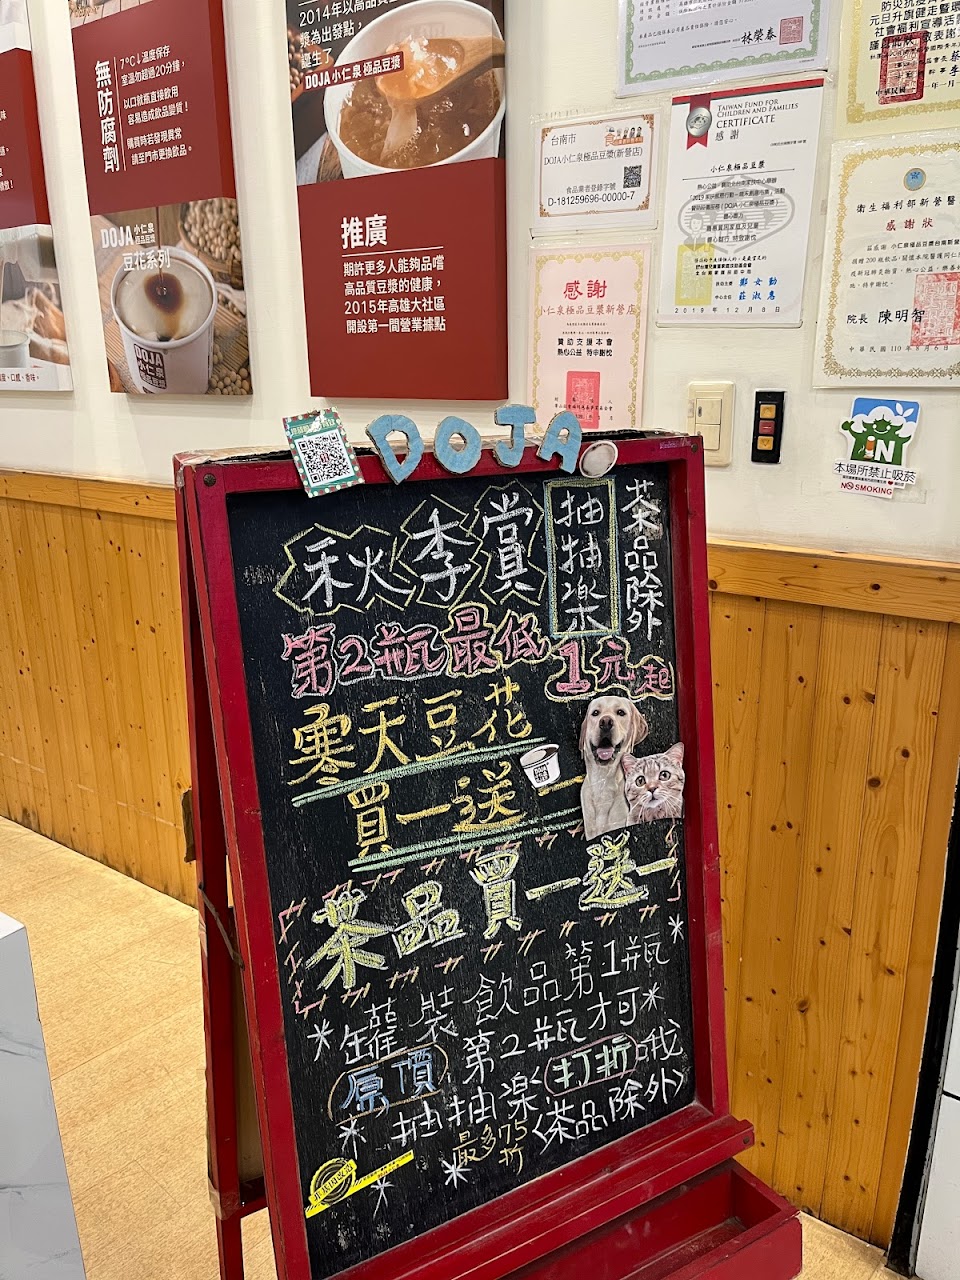 無防腐劑
7°C↓溫度保存
室溫勿超過20分鐘,
以口就瓶直接飲用
容易造成飲品變質!
購買時若發現異常
請至門市更換飲品。
DOJA 小仁泉
極品豆漿
豆花系列
DOJA
小仁泉
極品豆漿
漿為出發點,
誕生了
DOJA 小仁泉 極品豆漿
推廣
期許更多人能夠品嚐
高品質豆漿的健康,
2015年高雄大社區
開設第一間營業據點
林榮泰
台南市
DOJA小仁泉極品豆漿(新營店)
食品業者登錄字號
D-181259696-00000-7
感謝
小仁泉極品豆漿新營店
贊助支援本會
熱心公益 特申謝忱
TAIWAN FUND FOR
CHILDREN AND FAMILIES
CERTIFICATE
感謝
小仁泉極品豆漿
2019年12月8日
衛生福利部新營醫
感謝狀
院長 陳明智
中華民國110年8月6日
本場所禁止吸菸
NO SMOKING
DOJA
秋季賞
抽抽樂
茶品除外
第2瓶最低1元起
寒天豆花
買一送一
茶品買一送一
*罐裝飲品第1瓶*
原價 第2瓶才可*
*抽抽樂打折哦
最多75折
<茶品除外>